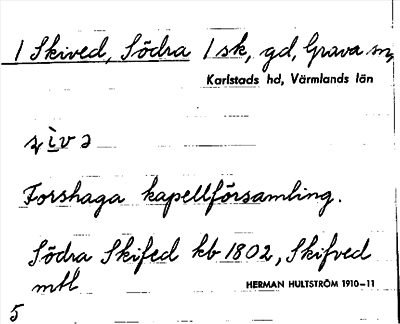 1 Skived, Södra 1 sk, gd, Grava sn,
Karlstads hd, Värmlands län
Forshaga kapellförsamling.
Södra Skifed kb 1802, Skifved
mtl
HERMAN HULTSTRÖM 1910–11
5